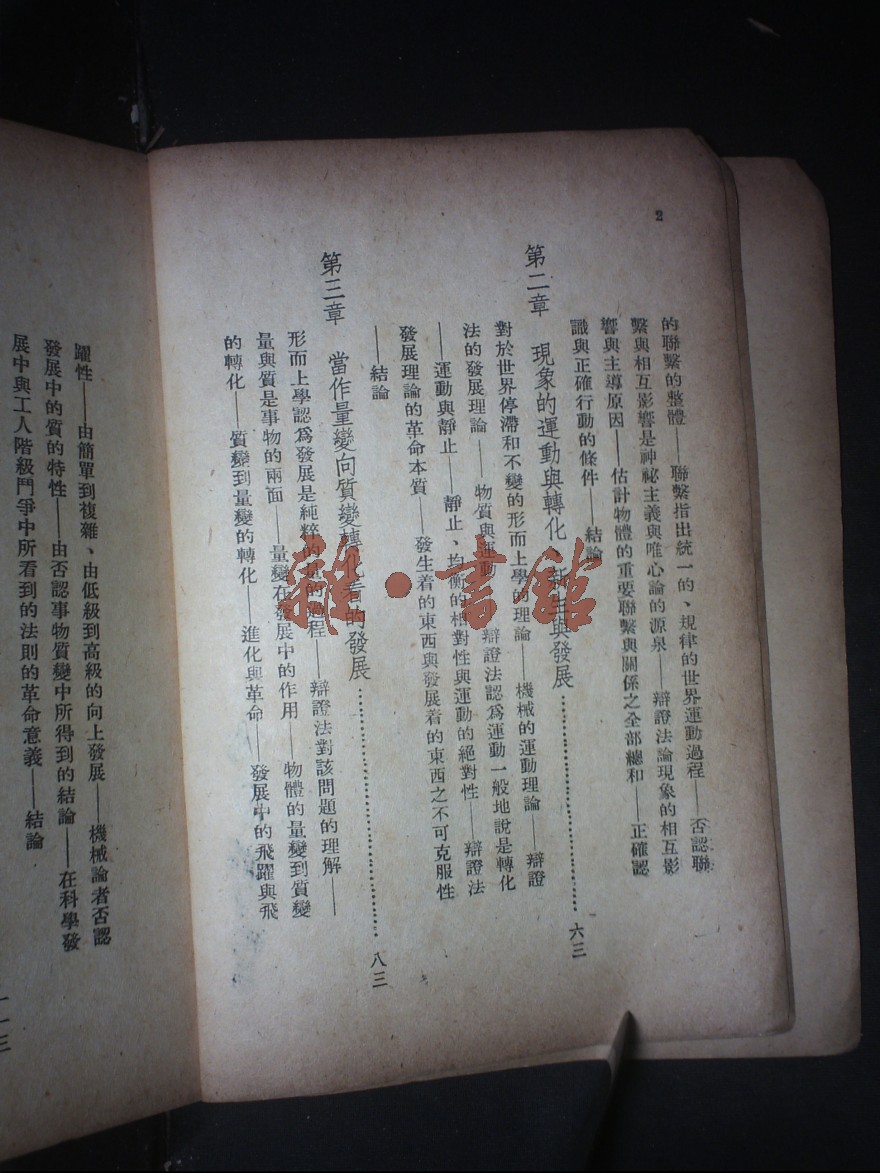 2
的聯繫的整體——聯繫指出統一的、規律的世界運動過程——否認聯
繫與相互影響是神祕主義與唯心論的源泉——辯證法論現象的相互影
響與主導原因——估計物體的重要聯繫與關係之全部總和——正確認
識與正確行動的條件——結論
第二章 現象的運動與轉化、新生與發展……六三
對於世界停滯和不變的形而上學的理論——機械的運動理論——辯證
法的發展理論——物質與運動——辯證法認爲運動一般地說是轉化
——運動與靜止——靜止、均衡的相對性與運動的絕對性——辯證法
發展理論的革命本質——發生着的東西與發展着的東西之不可克服性
——結論
第三章 當作量變向質變轉化看的發展……八三
形而上學認爲發展是純粹的量的過程——辯證法對該問題的理解——
量與質是事物的兩面——量變在發展中的作用——物體的量變到質變
的轉化——質變到量變的轉化——進化與革命——發展中的飛躍與飛
躍性——由簡單到複雜、由低級到高級的向上發展——機械論者否認
發展中的質的特性——由否認事物質變中所得到的結論——在科學發
展中與工人階級鬥爭中所看到的法則的革命意義——結論
一一三
雜·書館